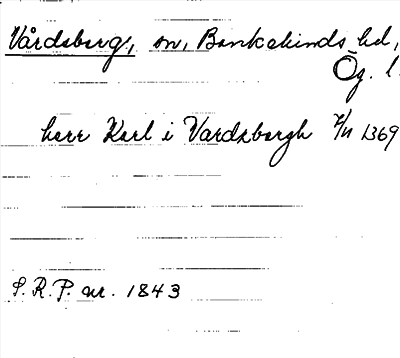 Vårdsberg, sn, Bankekinds hd,
Ög. l.
herr Karl i Vardzbergh 7/11 1369
S.R.P. nr. 1843